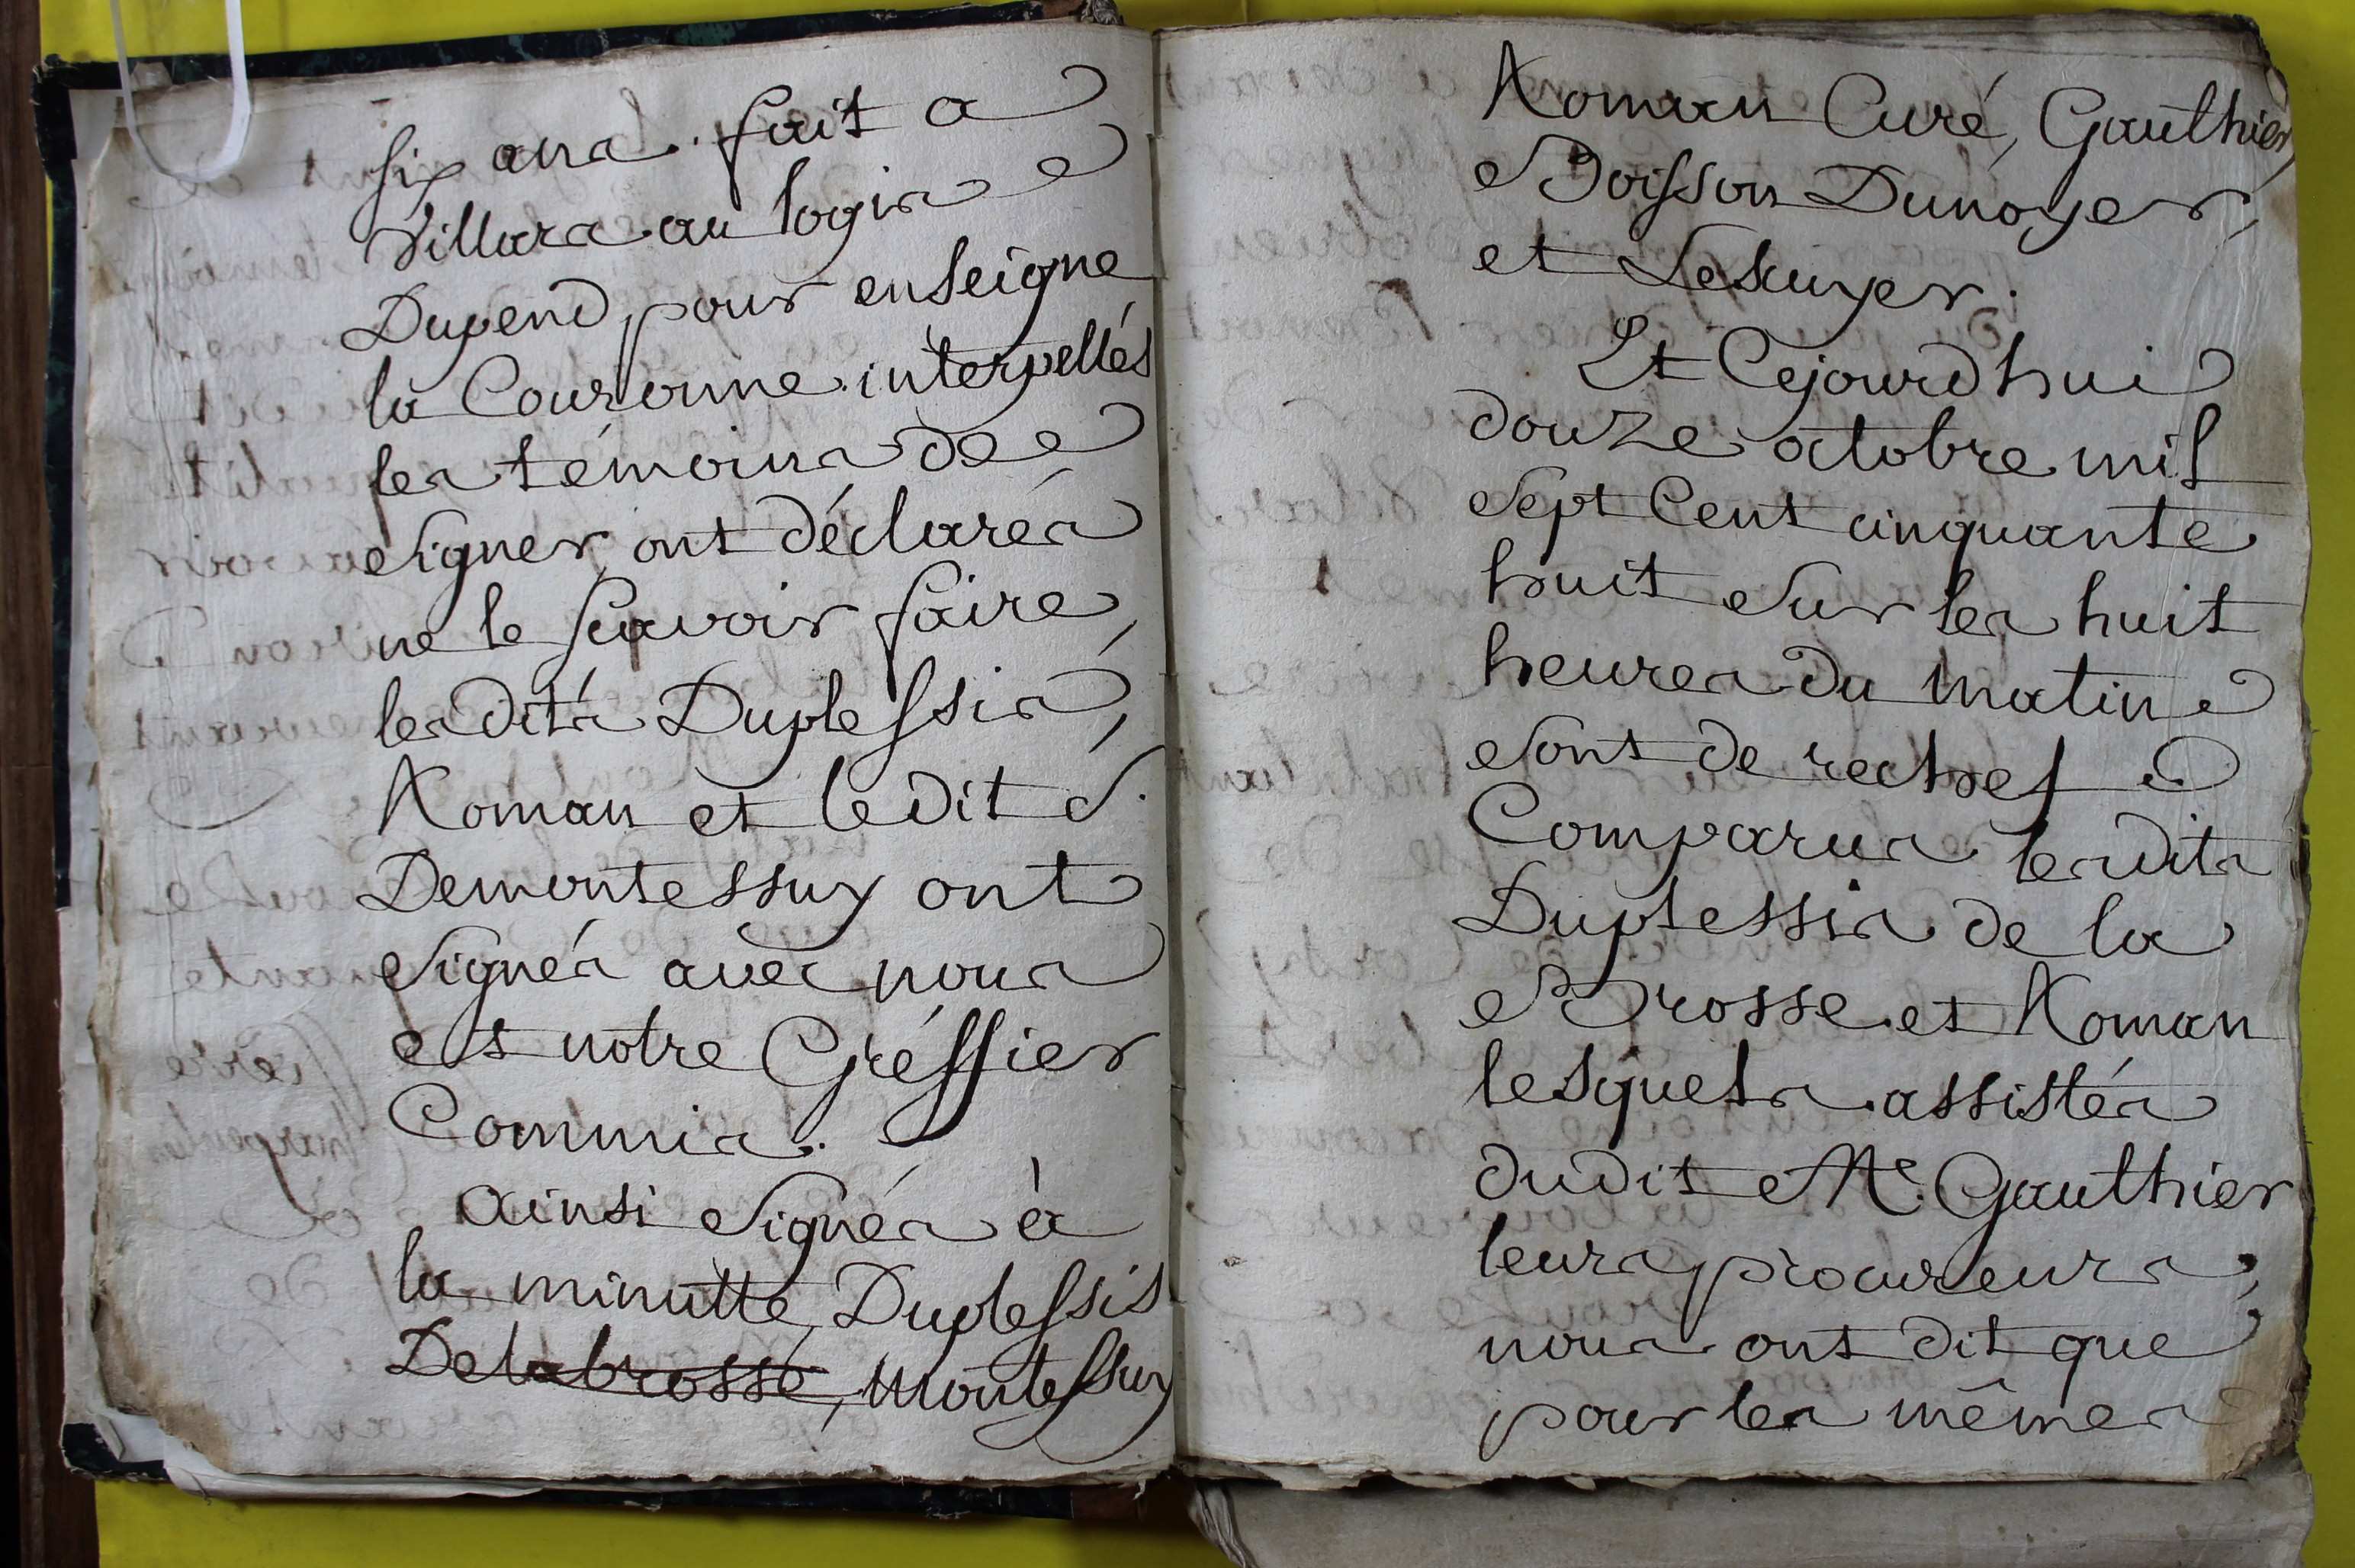 six ans. fait a
Villars au logis
Dupend, pour enseigne
la Couronne. interpellés
les témoins de
signer, ont déclarés
ne le scavoir faire,
lesdits Duplessis,
Roman et ledit S.
Demontessuy ont
signés avec nous
et notre Gréffier
Commis.
ainsi signés à
la minutte, Duplessis
Delabrosse, Montessuy
Roman Curé, Gauthier,
Boisson Dunoyer,
et Lescuyer.
Et Cejourdhui
douze octobre mil
sept Cent cinquante
huit sur les huit
heures du matin
sont de rechef
Comparus lesdits
Duplessis de la
Brosse et Roman
lesquels assistés
dudit Me. Gauthier
leurs procureurs,
nous ont dit que
pour les mêmes